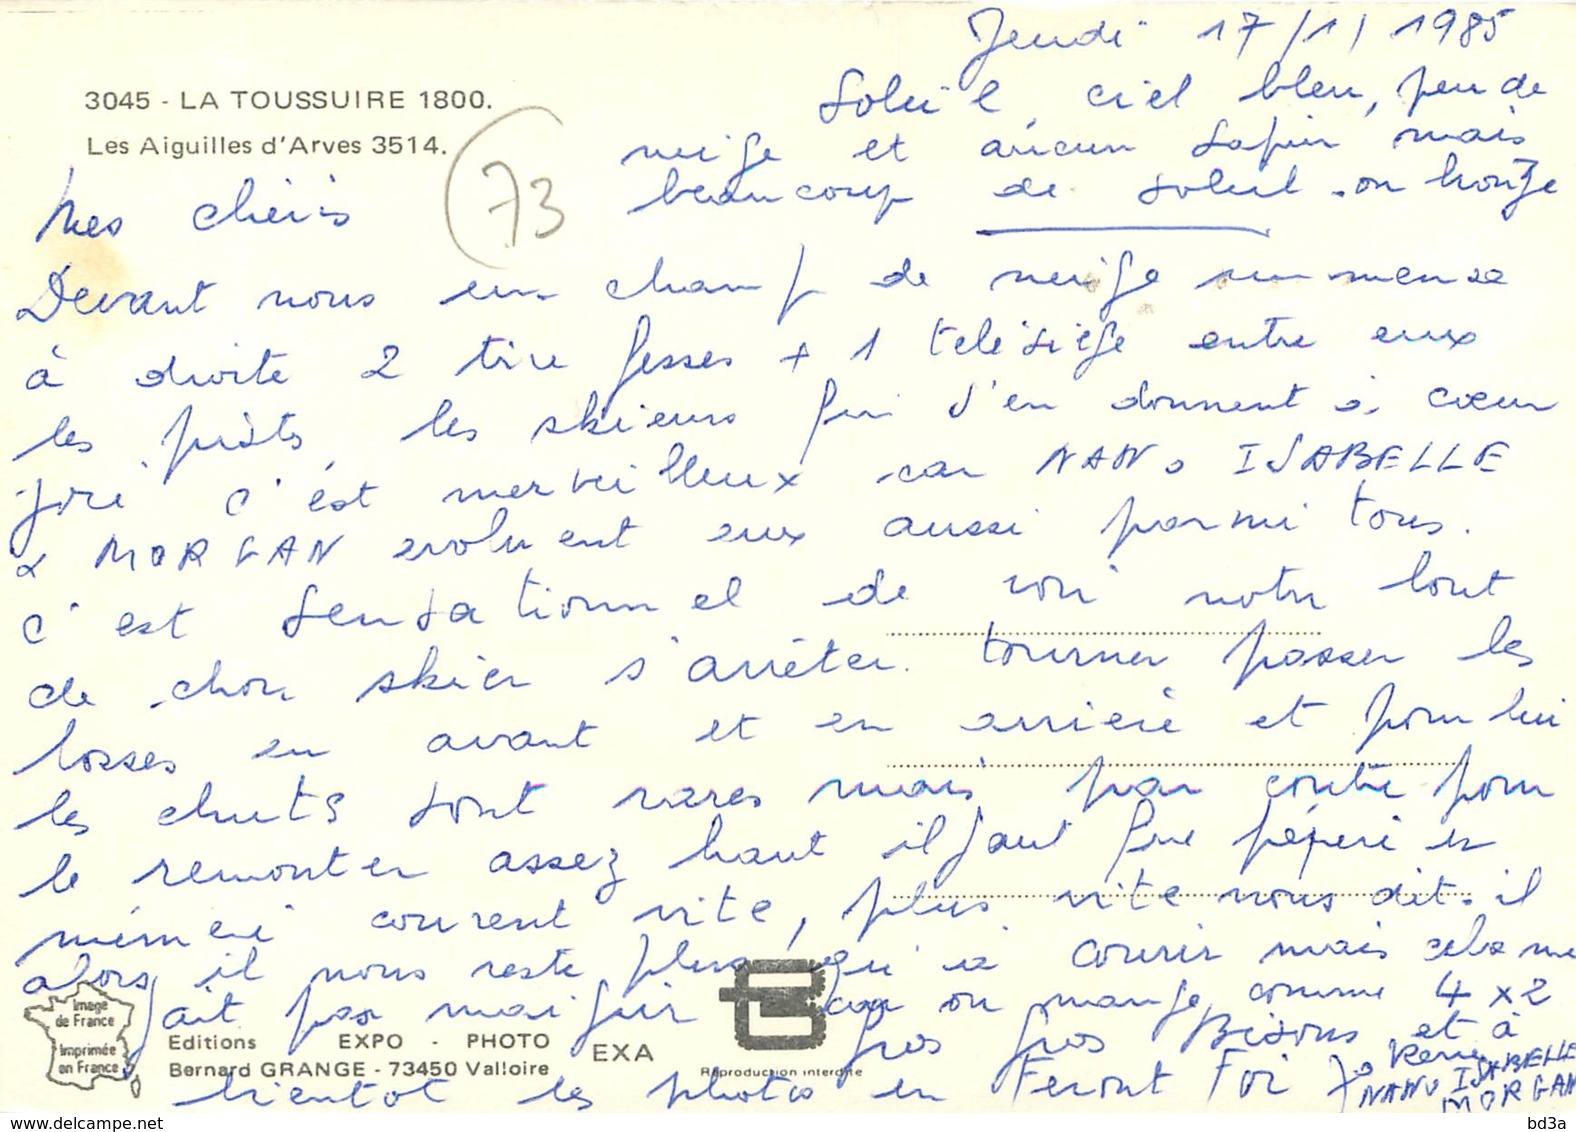 Jeudi 17/1/1985
3045 - LA TOUSSUIRE 1800.
Soleil, ciel bleu, peu de
Les Aiguilles d'Arves 3514.
neige et aucun sapin mais
73
Mes chéris
beaucoup de soleil - on bronze
Devant nous un champ de neige immense
à droite 2 tire fesses + 1 télésiège entre eux
les pistes, les skieurs qui s'en donnent à cœur
joie c'est merveilleux car NANO ISABELLE
& MORGAN evoluent eux aussi parmi tous.
C'est sensationnel de voir notre bout
de chou skier s'arrêter tourner passer les
bosses en avant et en arrière et pour lui
les chutes sont rares mais par contre pour
le remonter assez haut il faut que pépère et
mémère courent vite, plus vite nous dit-il
alors il nous reste plus qu'à courir mais cela me
fait pas maigrir car on mange comme 4 x 2
gros gros Bisous et à
bientôt les photos en
Image de France
Imprimée en France
Editions EXPO - PHOTO
Bernard GRANGE - 73450 Valloire
EXA
Reproduction interdite
NANO ISABELLE
MORGAN
delcampe.net
bd3a